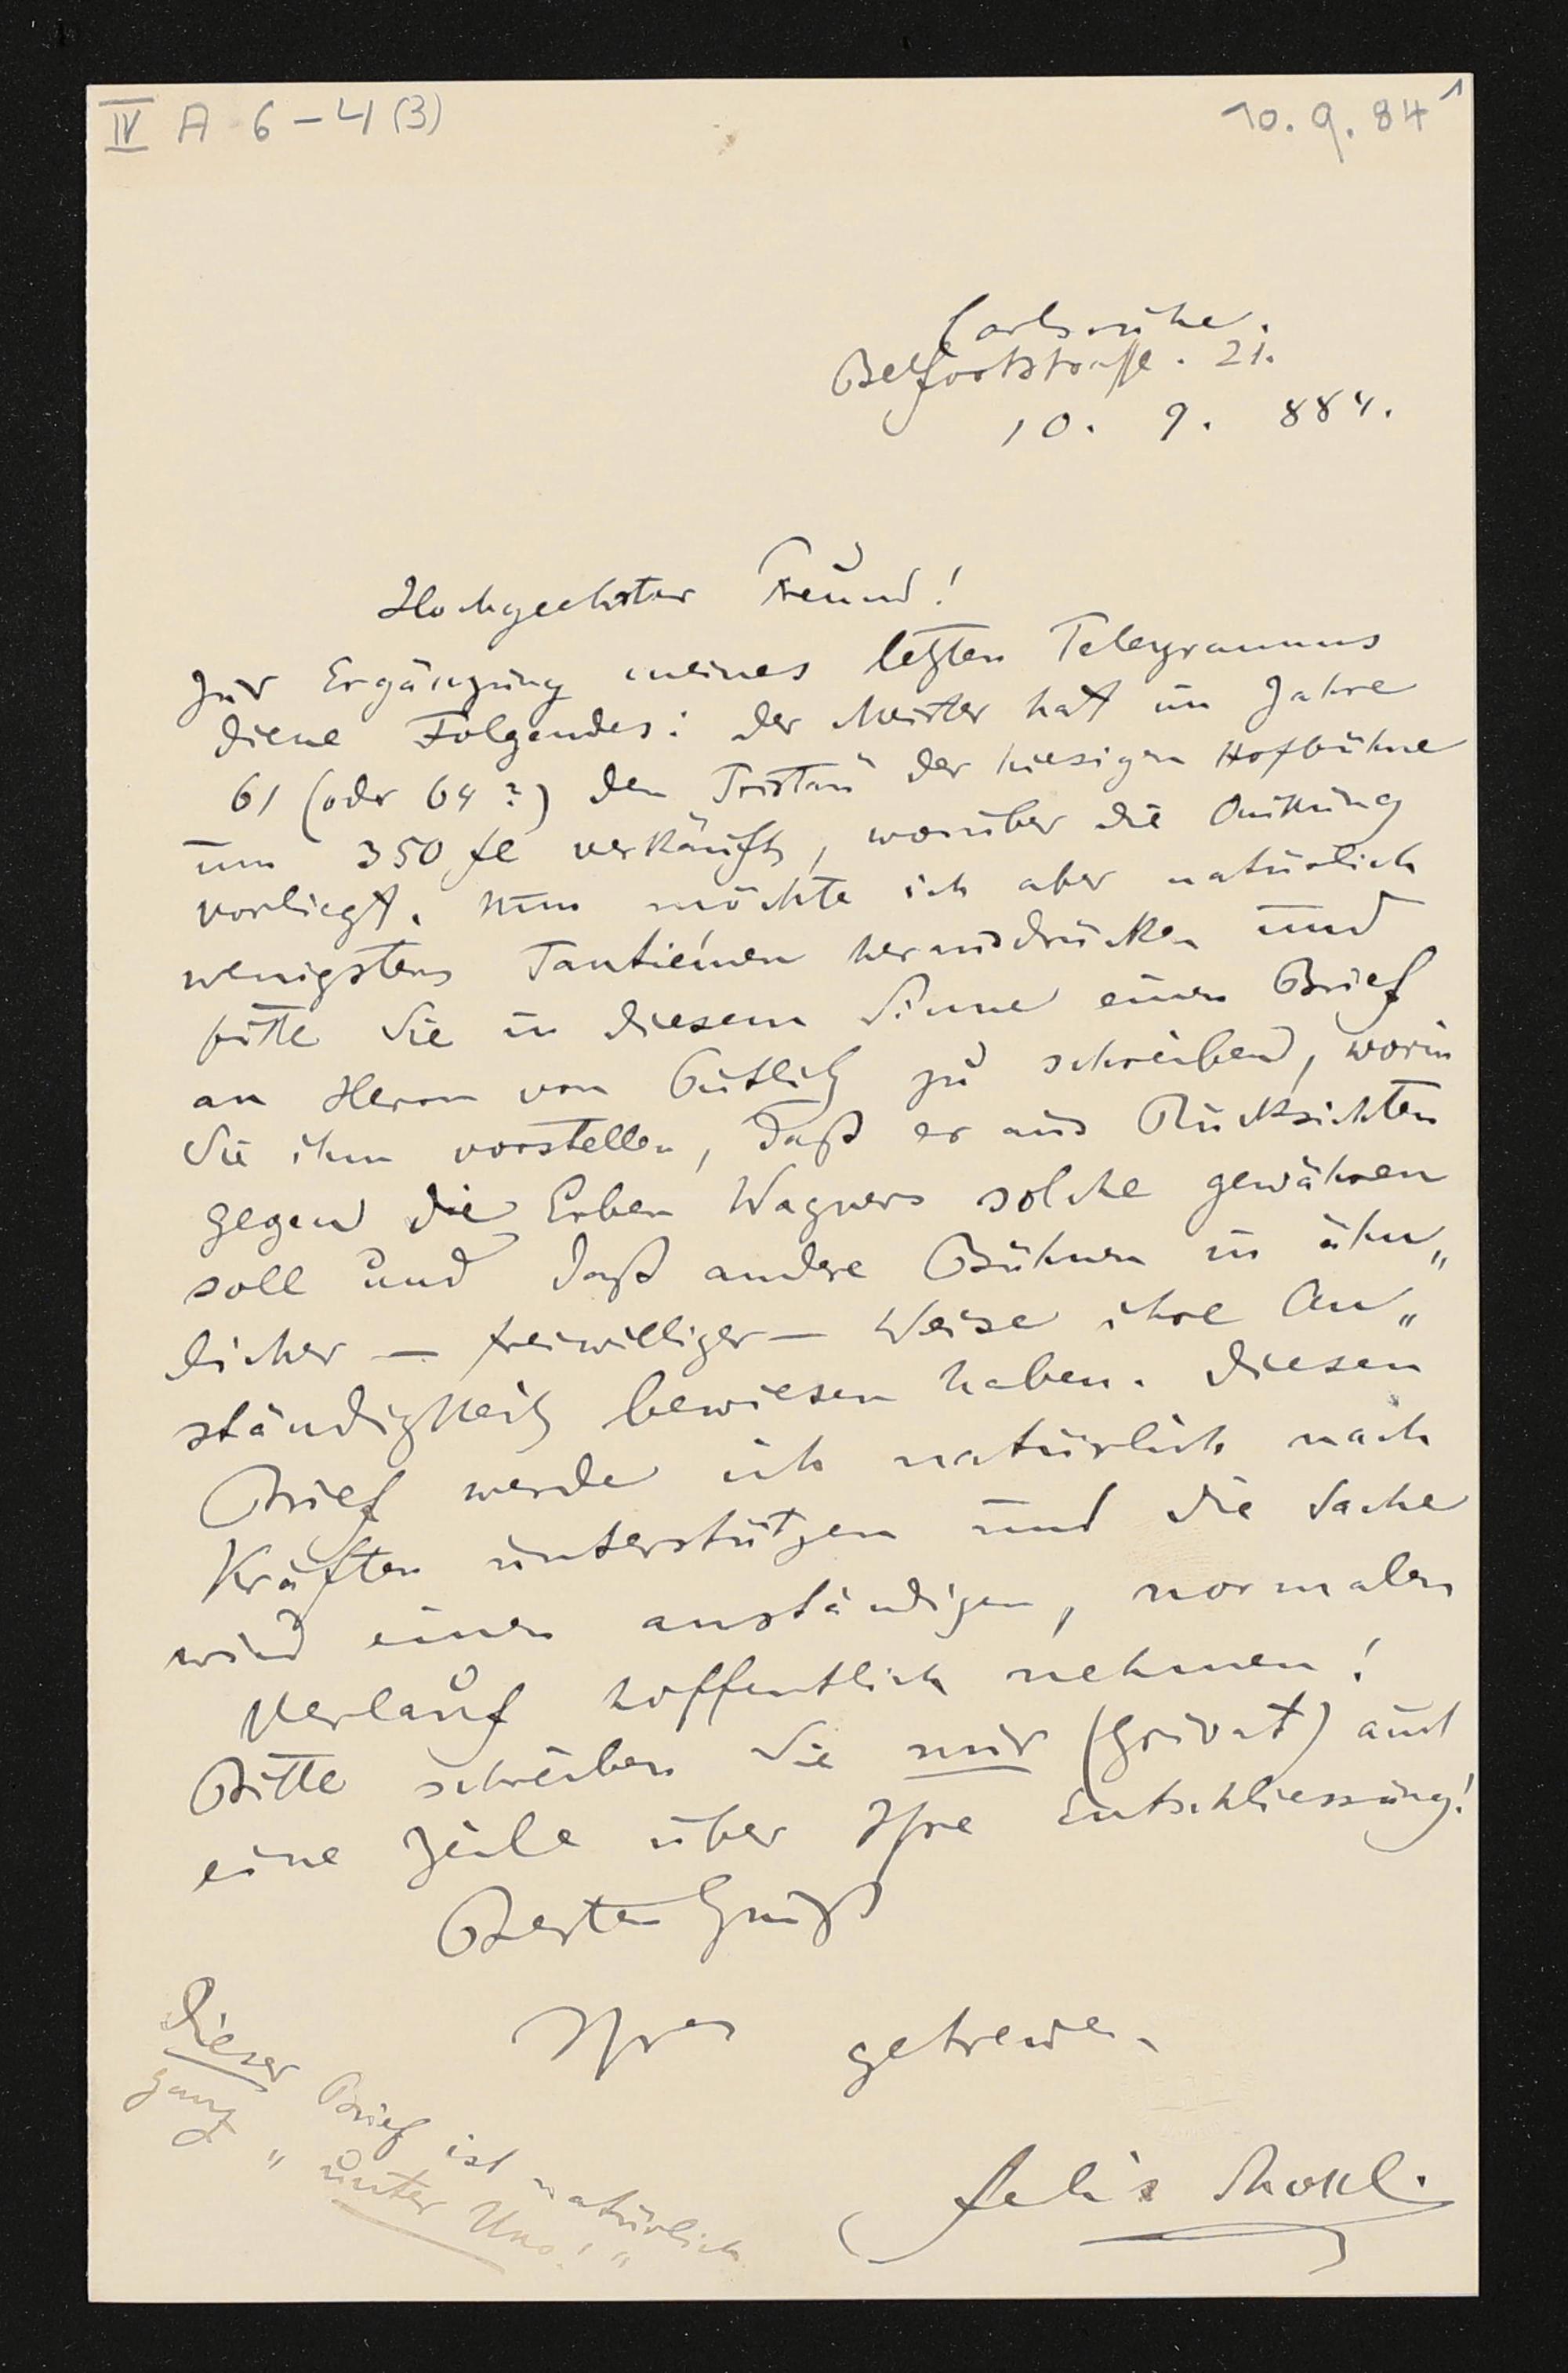 IV A 6-4(3)
10. 9. 84 1
Carlsruhe.
Belfortstrasse. 21.
10. 9. 884.
Hochgeehrter Freund!
Zur Ergänzung meines letzten Telegramms
diene Folgendes: der Meister hat im Jahre
61 (oder 64?) den „Tristan“ der hiesigen Hofbühne
um 350 fl verkauft, worüber die Quittung
vorliegt. Nun möchte ich aber natürlich
wenigstens Tantièmen herausdrücken und
bitte Sie in diesem Sinne einen Brief
an Herrn von Putlitz zu schreiben, worin
Sie ihm vorstellen, daß er aus Rücksichten
gegen die Erben Wagners solche gewähren
soll und daß andere Bühnen in ähn„
licher — freiwilliger — Weise ihre An„
ständigkeit bewiesen haben. Diesen
Brief werde ich natürlich nach
Kräften unterstützen und die Sache
wird einen anständigen, normalen
Verlauf hoffentlich nehmen!
Bitte schreiben Sie mir (privat) auch
eine Zeile über Ihre Entschliessung!
Besten Gruß
Ihres getreuen
Felix Mottl.
Dieser Brief ist natürlich
ganz „unter Uns!“